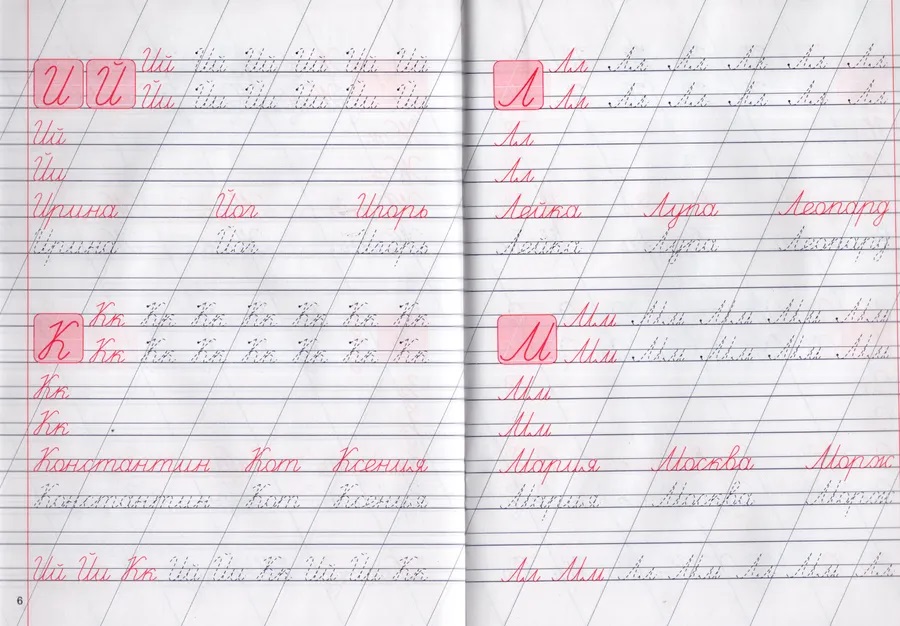 И Й Ий Ий Ий Ий Ий Ий
Йи Йи Йи Йи Йи Йи
Ий
Йи
Ирина Йог Игорь
Ирина Йог Игорь
К Кк Кк Кк Кк Кк Кк Кк
Кк Кк Кк Кк Кк Кк Кк
Кк
Кк
Константин Кот Ксения
Константин Кот Ксения
Ий Йи Кк Ий Йи Кк Ий Йи Кк
6
Л Лл Лл Лл Лл Лл Лл
Лл Лл Лл Лл Лл Лл
Лл
Лл
Лейка Лупа Леопард
Лейка Лупа Леопард
М Мм Мм Мм Мм Мм
Мм Мм Мм Мм Мм
Мм
Мм
Мария Москва Морж
Мария Москва Морж
Лл Мм Лл Мм Лл Мм Лл